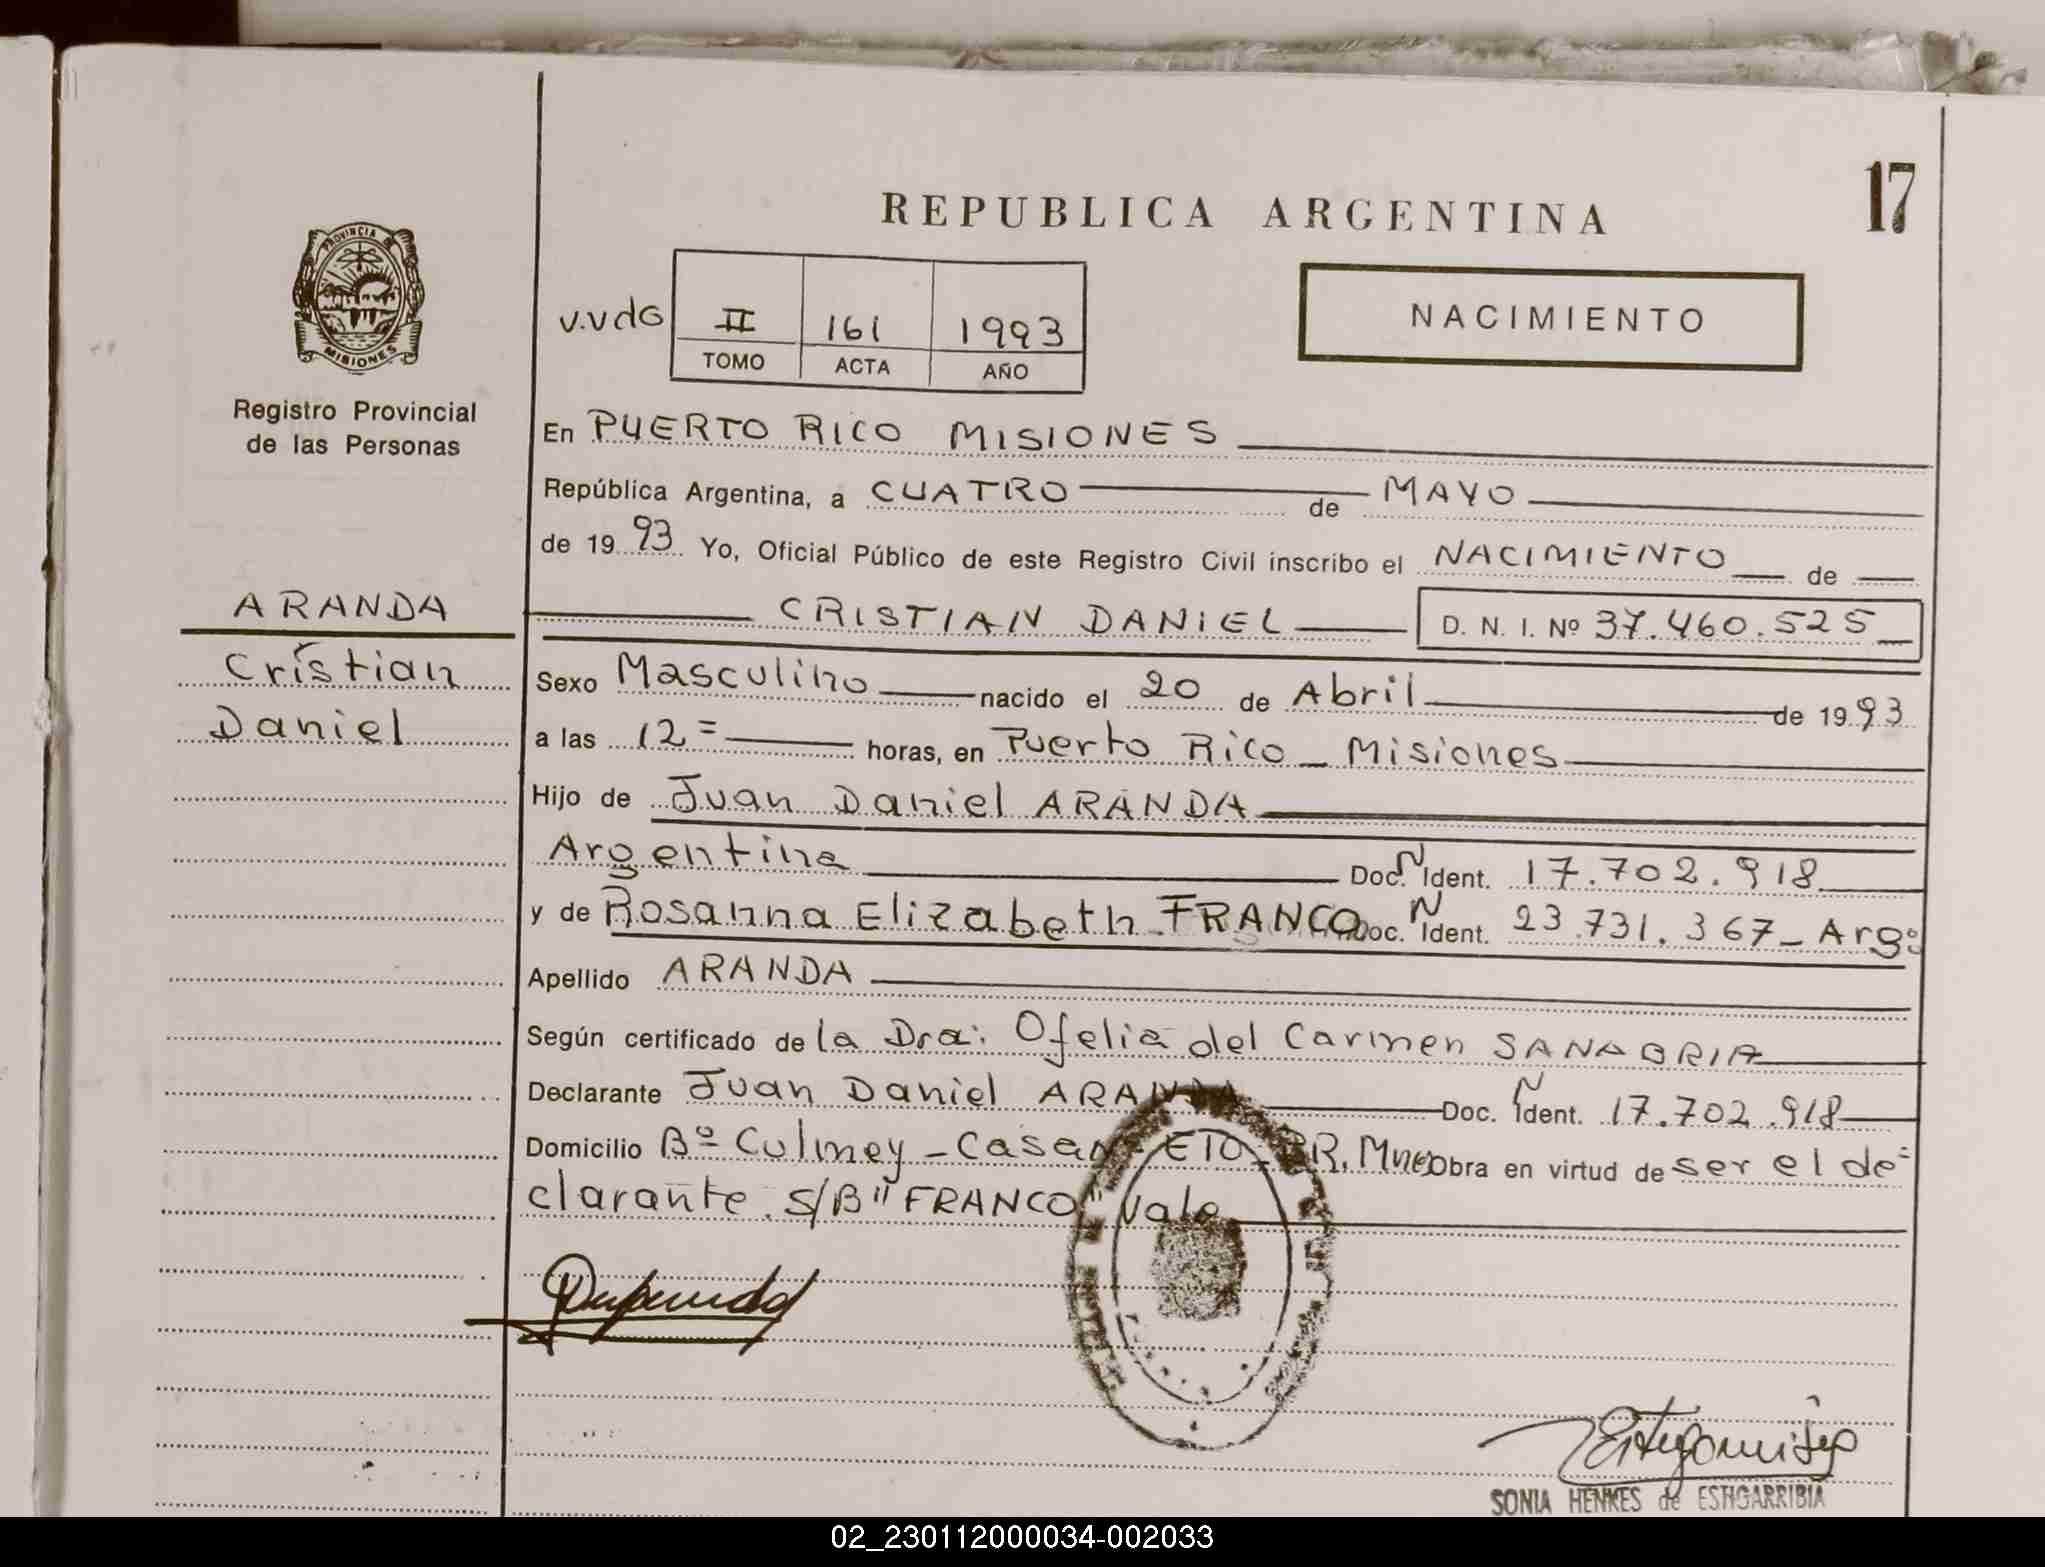 REPUBLICA ARGENTINA
17
PROVINCIA DE
MISIONES
Registro Provincial
de las Personas
V.VdG
II 161 1993
TOMO ACTA AÑO
NACIMIENTO
En PUERTO RICO MISIONES
República Argentina, a CUATRO de MAYO
de 1993 Yo, Oficial Público de este Registro Civil inscribo el NACIMIENTO de
ARANDA
Cristian
Daniel
CRISTIAN DANIEL D. N. I. Nº 37.460.525
Sexo Masculino nacido el 20 de Abril de 1993
a las 12= horas, en Puerto Rico - Misiones
Hijo de Juan Daniel ARANDA
Argentina Doc. N Ident. 17.702.918
y de Rosanna Elizabeth FRANCO Doc. N Ident. 23.731.367 - Argº
Apellido ARANDA
Según certificado de la Dra: Ofelia del Carmen SANABRIA
Declarante Juan Daniel ARANDA Doc. N Ident. 17.702.918
Domicilio Bº Culmey - Casa obra en virtud de ser el de=
clarante. S/B" FRANCO" Vale
SONIA HENKES de ESTIGARRIBIA
02_230112000034-002033